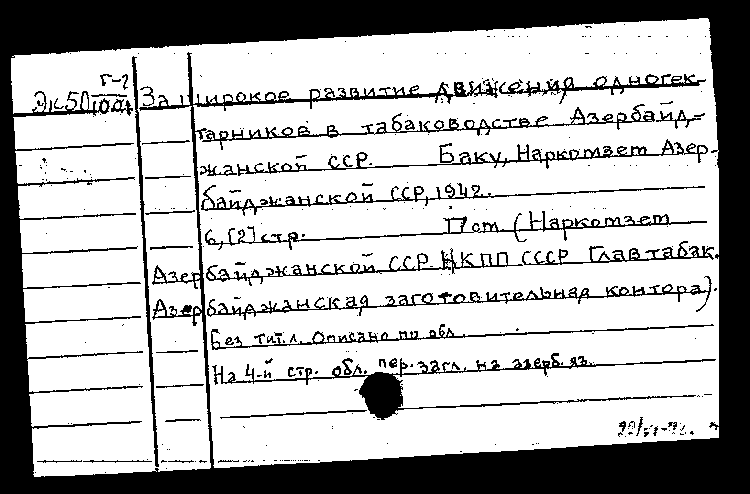 Г-2
За широкое развитие движения одногек-
тарников в табаководстве Азербайд-
жанской ССР. Баку, Наркомзет Азер-
байджанской ССР, 1942.
6, [2] стр. 17 см (Наркомзет
Азербайджанской ССР. НКПП СССР Главтабак.
Азербайджанская заготовительная контора).
Без тит. л. Описано по обл.
На 4-й стр. обл. пер. загл. на азерб. яз.